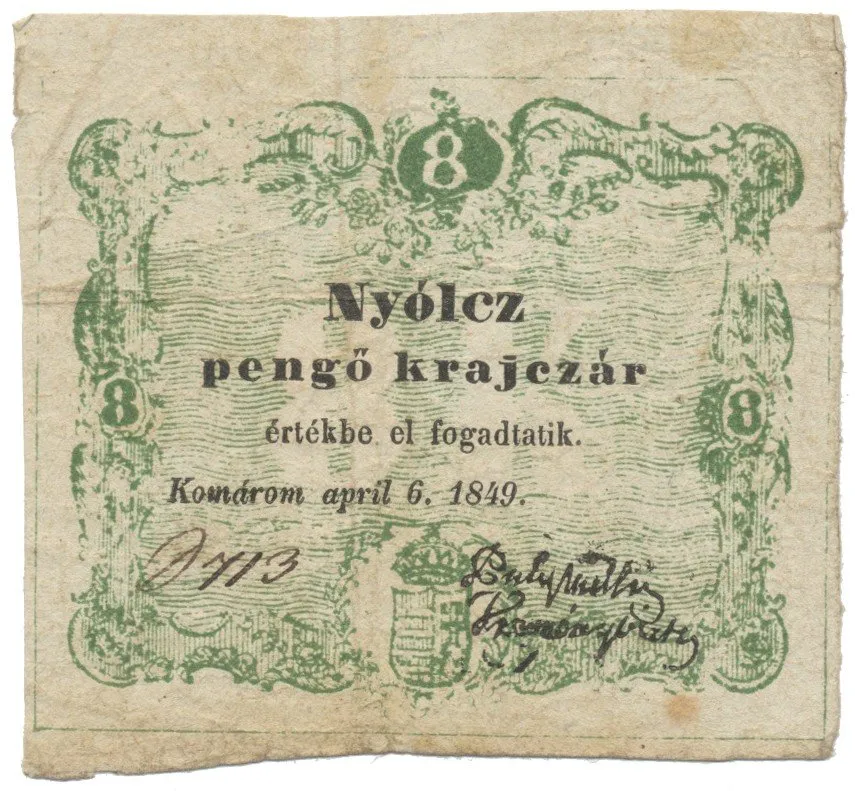 8
Nyólcz
pengő krajczár
8
8
értékbe el fogadtatik.
Komárom april 6. 1849.
713